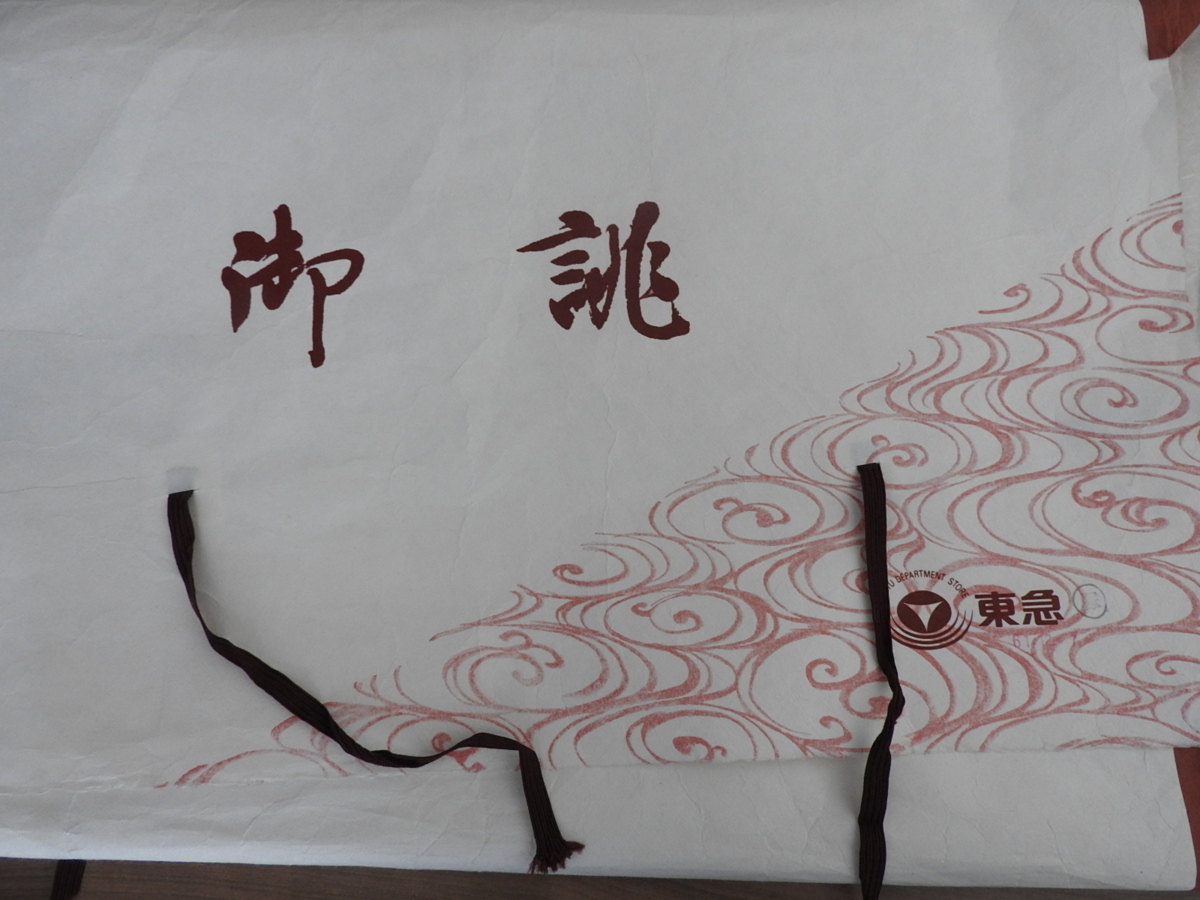 御 誂
DEPARTMENT STORE
東急